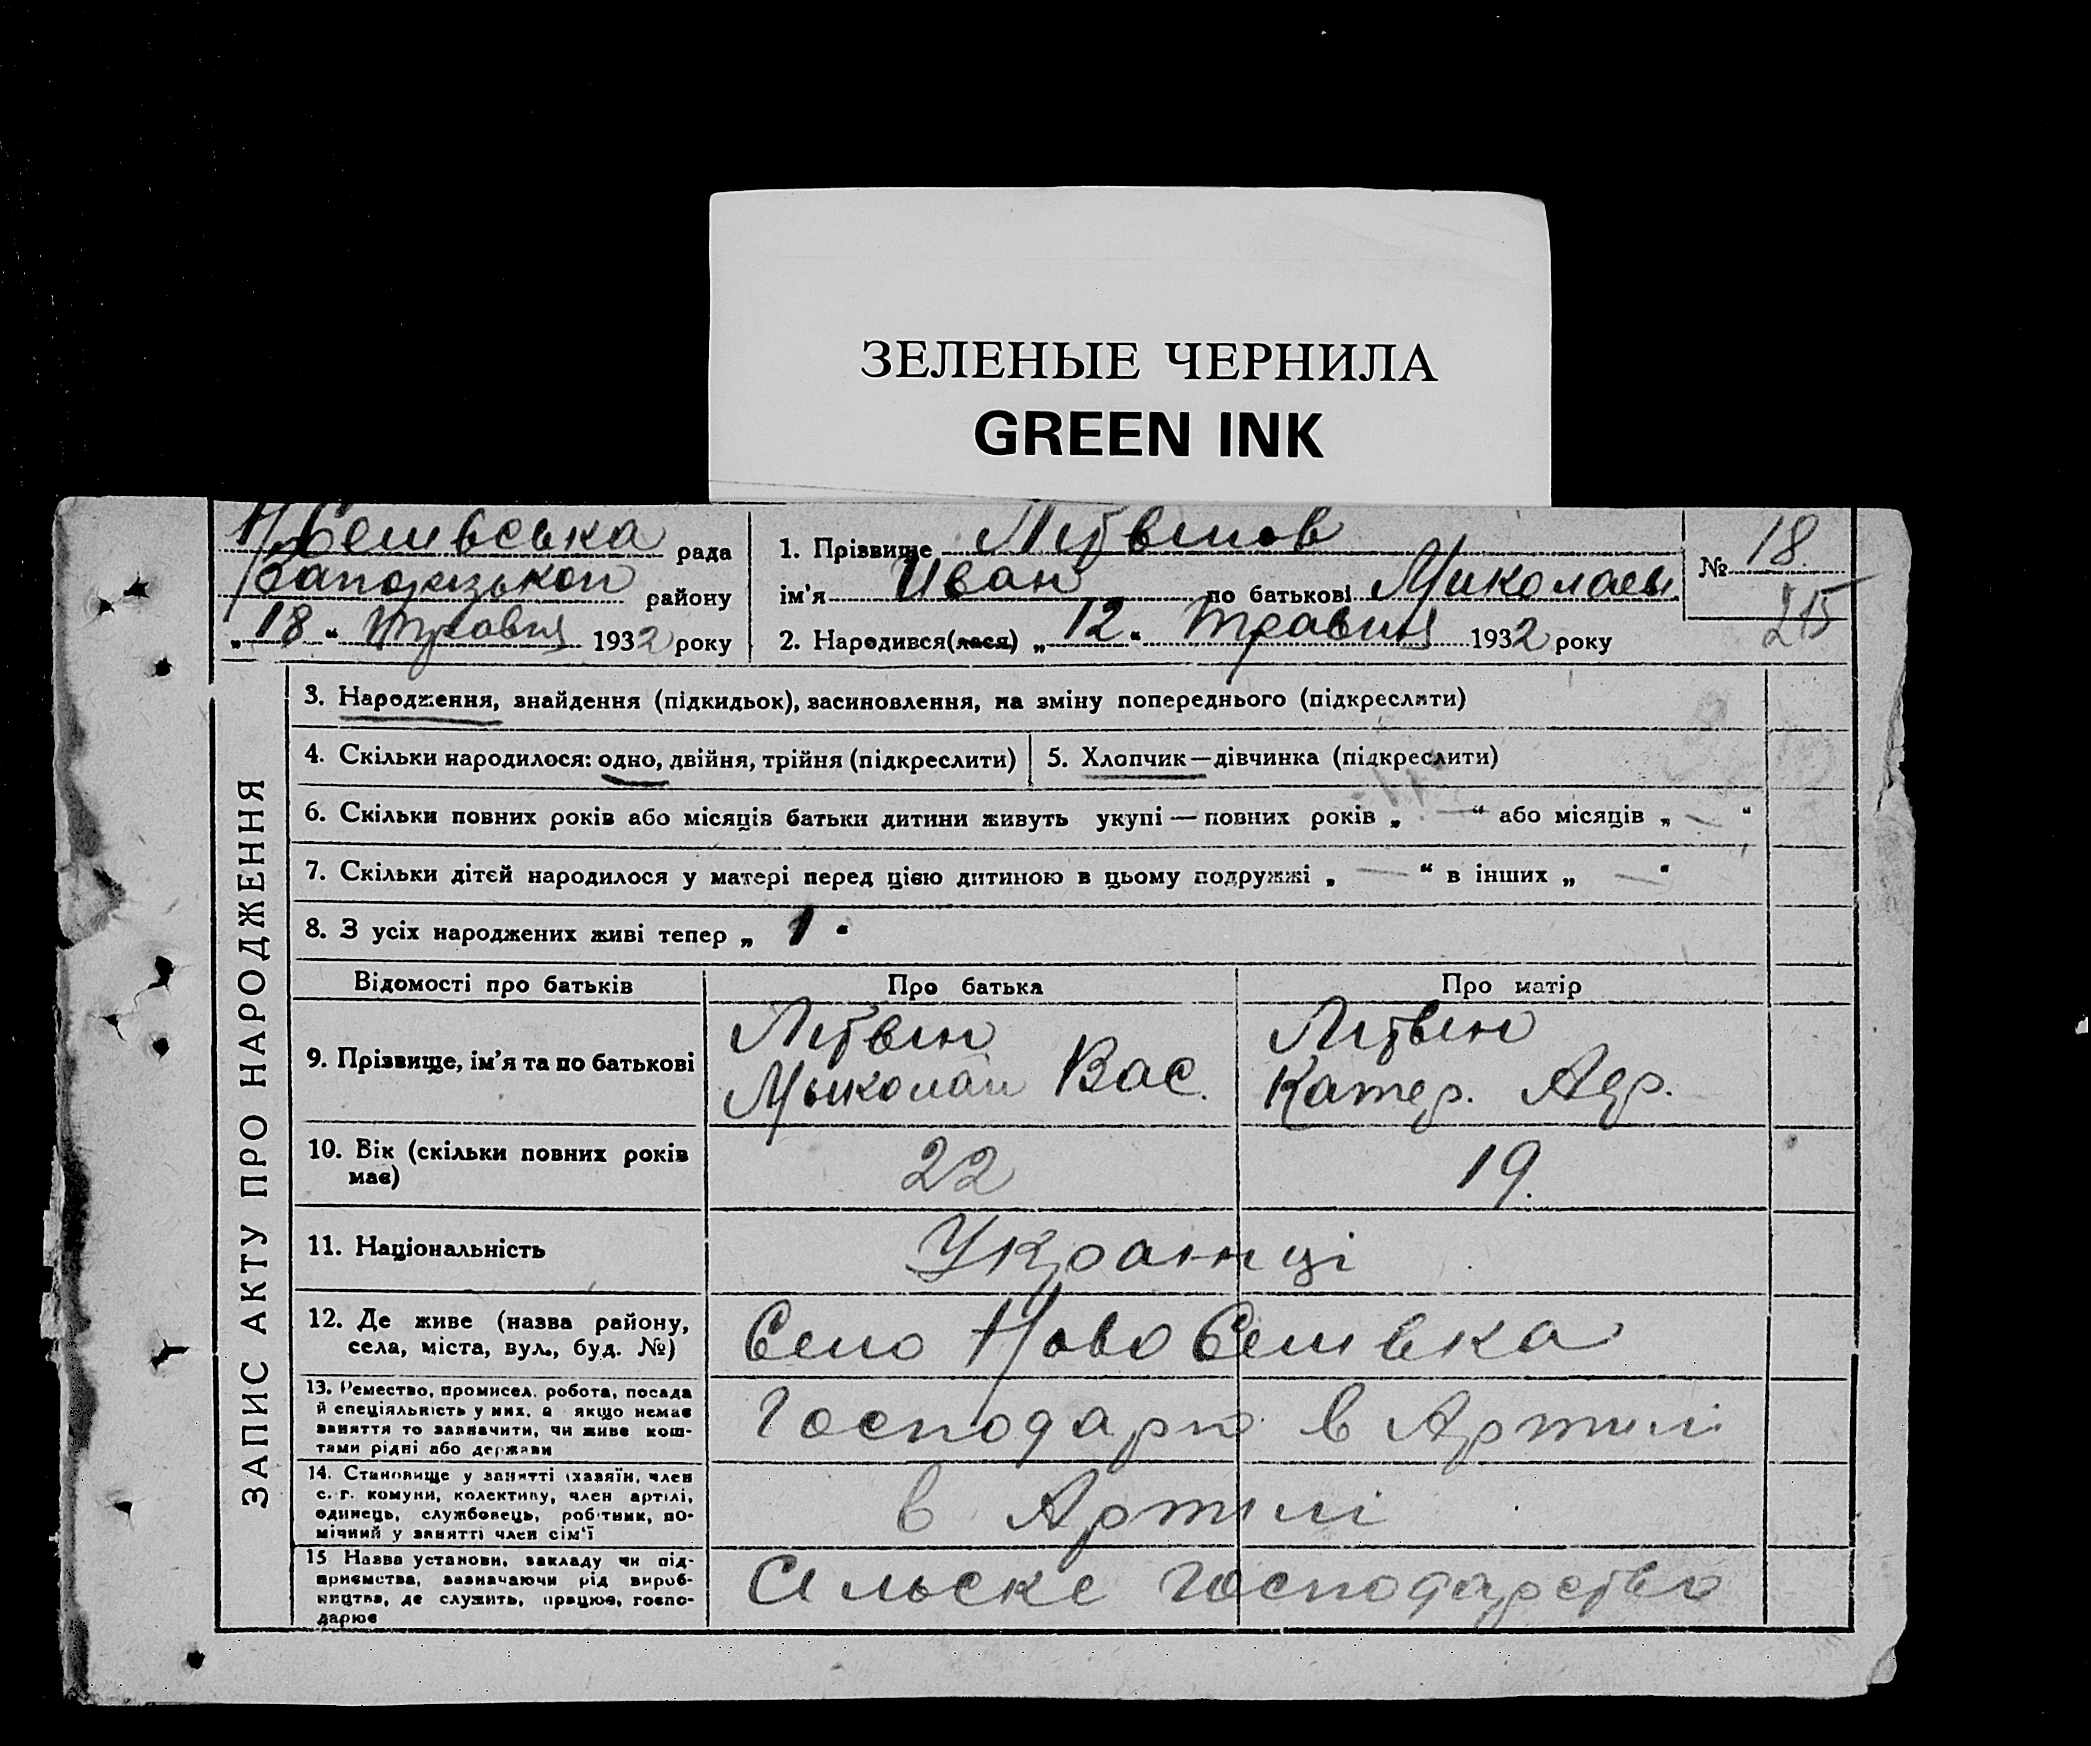 ЗЕЛЕНЫЕ ЧЕРНИЛА
GREEN INK
Н/Селивська рада
Запорізькой району
„18“ травня 1932 року
1. Прізвище Літвинов
ім'я Иван по батькові Миколаев.
2. Народився(лася) „12“ травня 1932 року
№ 18
215
ЗАПИС АКТУ ПРО НАРОДЖЕННЯ
3. Народження, знайдення (підкидьок), засиновлення, на зміну попереднього (підкреслити)
4. Скільки народилося: одно, двійня, трійня (підкреслити)
5. Хлопчик—дівчинка (підкреслити)
6. Скільки повних років або місяців батьки дитини живуть укупі — повних років „ — “ або місяців „ — “
7. Скільки дітей народилося у матері перед цією дитиною в цьому подружжі „ — “ в інших „ — “
8. З усіх народжених живі тепер „ 1 “
Відомості про батьків Про батька Про матір
9. Прізвище, ім'я та по батькові
Літвин
Мыколай Вас.
Літвин
Катер. Адр.
10. Вік (скільки повних років
має)
22 19.
11. Національність Украінці
12. Де живе (назва району,
села, міста, вул., буд. №)
Село Ново Селивка
13. Ремество, промисел, робота, посада
й спеціяльність у них, а якщо немає
заняття то зазначити, чи живе кош-
тами рідні або держави
Господарю в Артилі
14. Становище у занятті (хазяїн, член
с.-г. комуни, колективу, член артілі,
одинець, службовець, робітник, по-
мічний у занятті член сім'ї
в Артилі
15 Назва установи, закладу чи під-
приємства, зазначаючи рід вироб-
ництва, де служить, працює, госпо-
дарює
Сільске господарство